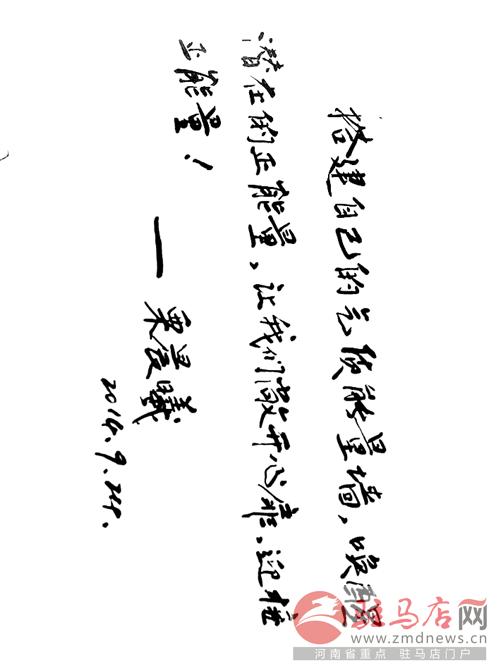 搭建自己的气质能量墙，唤醒
潜在的正能量，让我们敞开心扉、迎接
正能量！
——栗曦
2014.9.24.
驻马店网
www.zmdnews.cn
河南省重点 驻马店门户